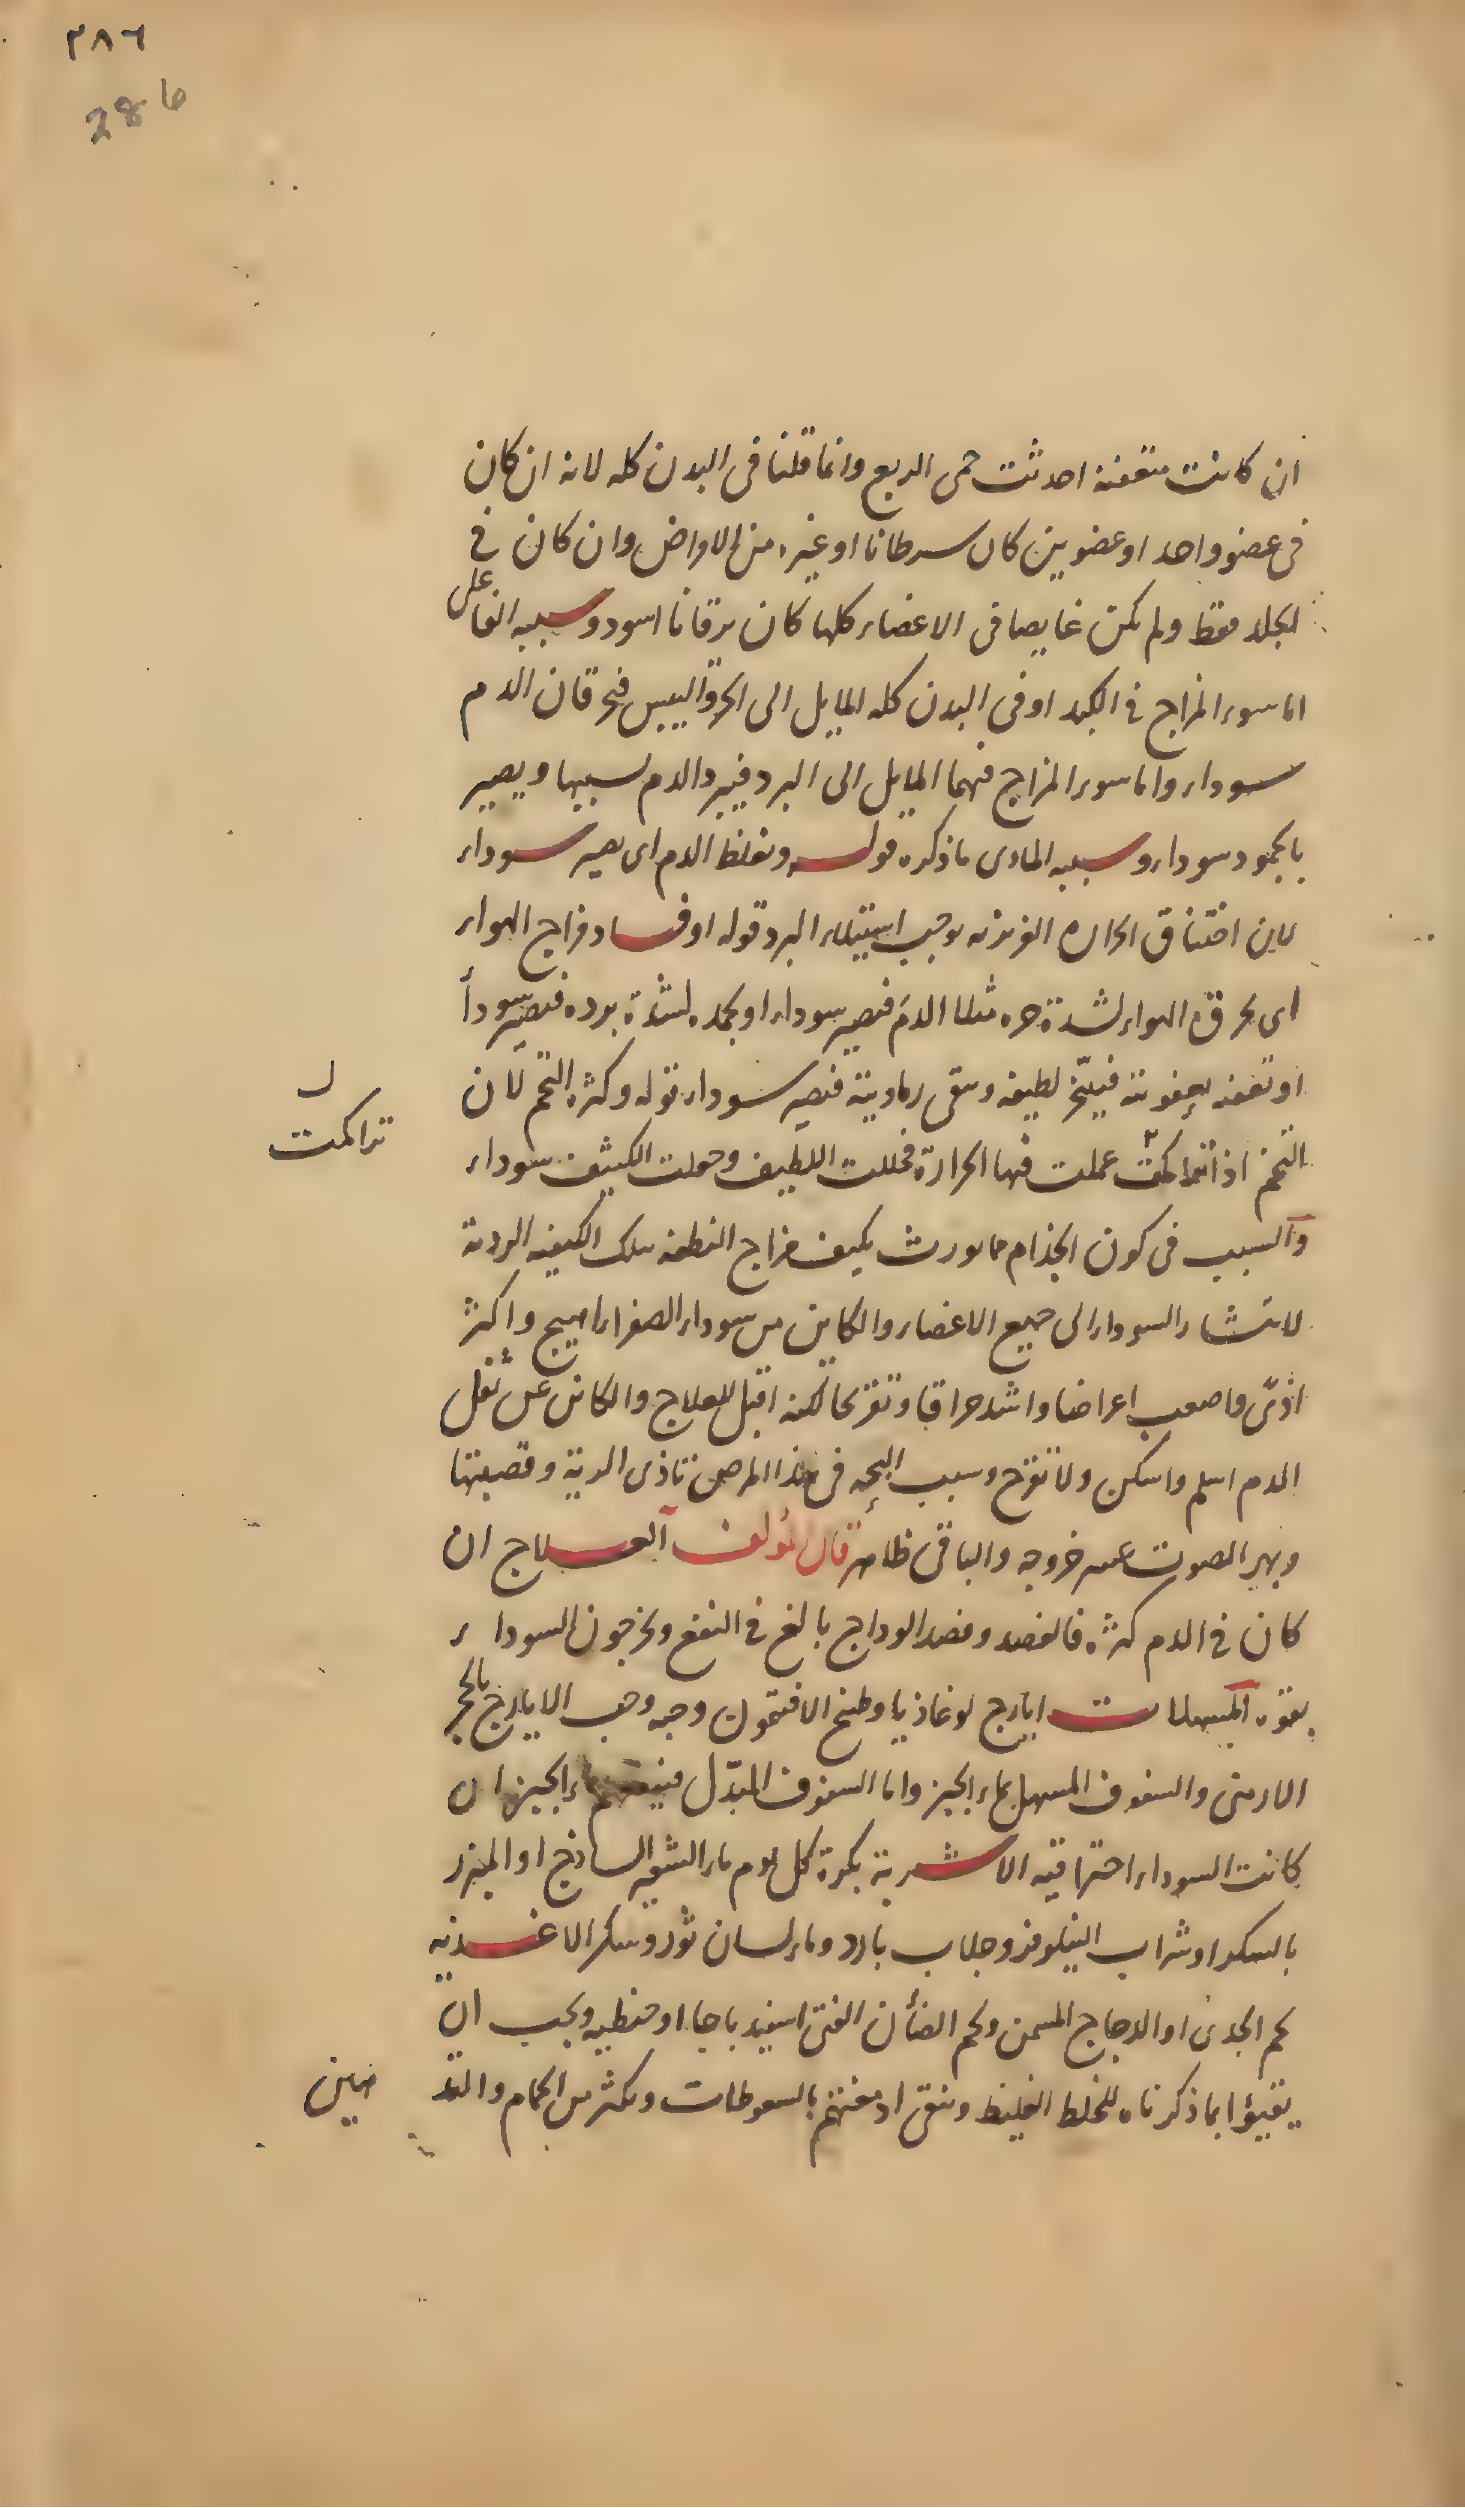 ٢٨٦
286
ان كانت متعفنة احدثت حمى الربع وانما قلنا فى البدن كله لانه ان كان
فى عضو واحد او عضوين كان سرطانا او غيره من الامراض وان كان فى
الجلد فقط ولم يكن غايصا فى الاعضاء كلها كان يرقانا اسود وسببه الفاعلى
اما سوء المزاج فى الكبد او فى البدن كله المايل الى الحر واليبس فيحرقان الدم
سوداء واما سوء المزاج فيهما المايل الى البرد فيبرد الدم بسببها ويصير
بالجمود سوداء وسببه المادى ما ذكره قوله وتغلظ الدم اى يصير سوداء
لان اختناق الحارة الغريزية يوجب استيلاء البرد قوله او فساد مزاج الهواء
اى يحرق الهواء لشدة حره مثلا الدم فيصير سوداء او يجمده لشدة برده فيصير سوداء
او تعفنه بعفونته فيتبخر لطيفه ويبقى رمادية فيصير سوداء قوله وكثرة التخم لان
التخم اذا تراكمت عملت فيها الحرارة فحللت اللطيف وحولت الكثيف سوداء
ل
تراكمت
والسبب فى كون الجذام مما يورث تكيف مزاج النطفة بتلك الكيفية الردية
لانتشار السوداء الى جميع الاعضاء والكاين من سوداء الصفراء اهيج واكثر
اذى واصعب اعراضا واشد حراقا وتقرحا لكنه اقبل للعلاج والكاين عن ثفل
الدم اسلم واسكن ولا تقرح وسبب البحة فى هذا المرض تاذى الرية وقصبتها
وبهر الصوت عند خروجه والباقى ظاهر قال المؤلف العلاج ان
كان فى الدم كثرة فالفصد وفصد الوداج بالغ فى النفع ويخرجون السوداء
بقوة المسهلات ايارج لوغاذيا وطبيخ الافتيمون وحبه وحب الايارج بالحجر
الارمنى والسفوف المسهل بماء الجبن واما السفوف المبدل ماء الجبن ان
كانت السوداء احتراقية الاشربة بكرة كل يوم ماء الشعير الساذج او المبزر
بالسكر او شراب النيلوفر وجلاب بارد وماء لسان ثور وسكر الاغذية
لحم الجدى او الدجاج المسمن ولحم الضأن الفتى اسفيدباجا او حنطية ويجب ان
يقيؤا بما ذكرناه للخلط الغليظ وينقى ادمغتهم بالسعوطات ويكثر من الحمام والتد
هين